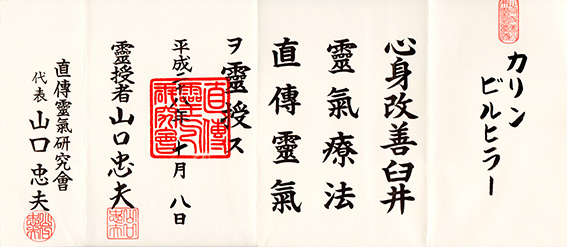 カリン
ビルヒラー
心身改善臼井
靈氣療法
直傳靈氣
ヲ靈授ス
年 十月 八日
靈授者 山口忠夫
直傳靈氣研究會
代表 山口忠夫